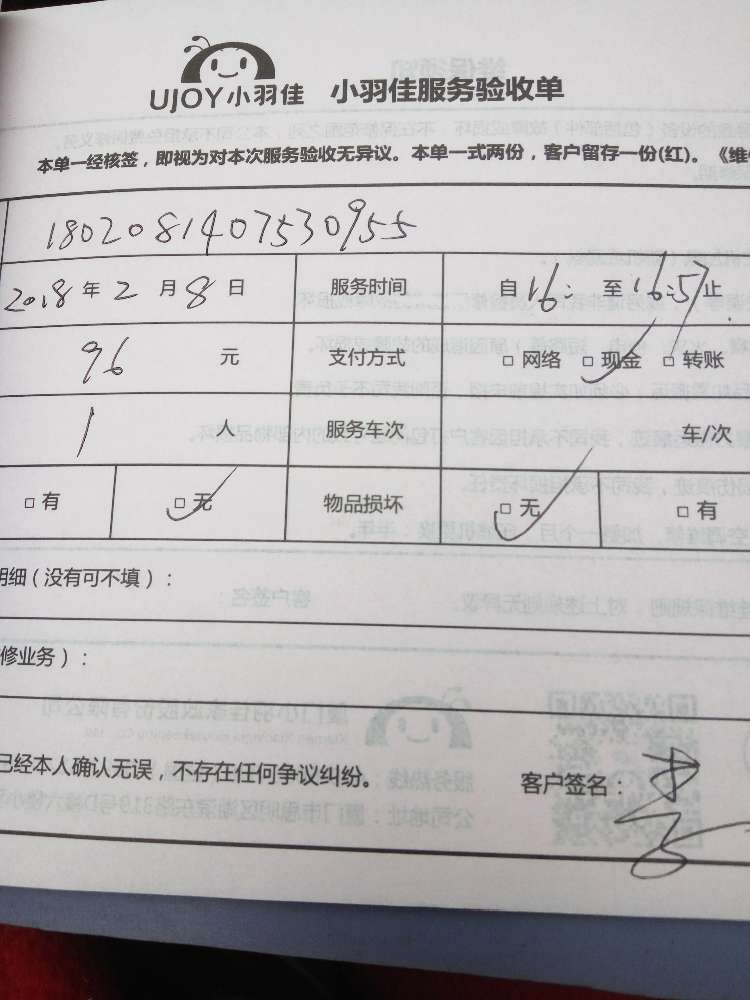 UJOY小羽佳 小羽佳服务验收单
本单一经核签，即视为对本次服务验收无异议。本单一式两份，客户留存一份(红)。《维
1802081407530955
2018 年 2 月 8 日 服务时间 自 16: 至 16:57 止
96 元 支付方式 □ 网络 □ 现金 □ 转账
1 人 服务车次 车/次
□ 有 □ 无 物品损坏 □ 无 □ 有
明细（没有可不填）：
修业务）：
已经本人确认无误，不存在任何争议纠纷。 客户签名：